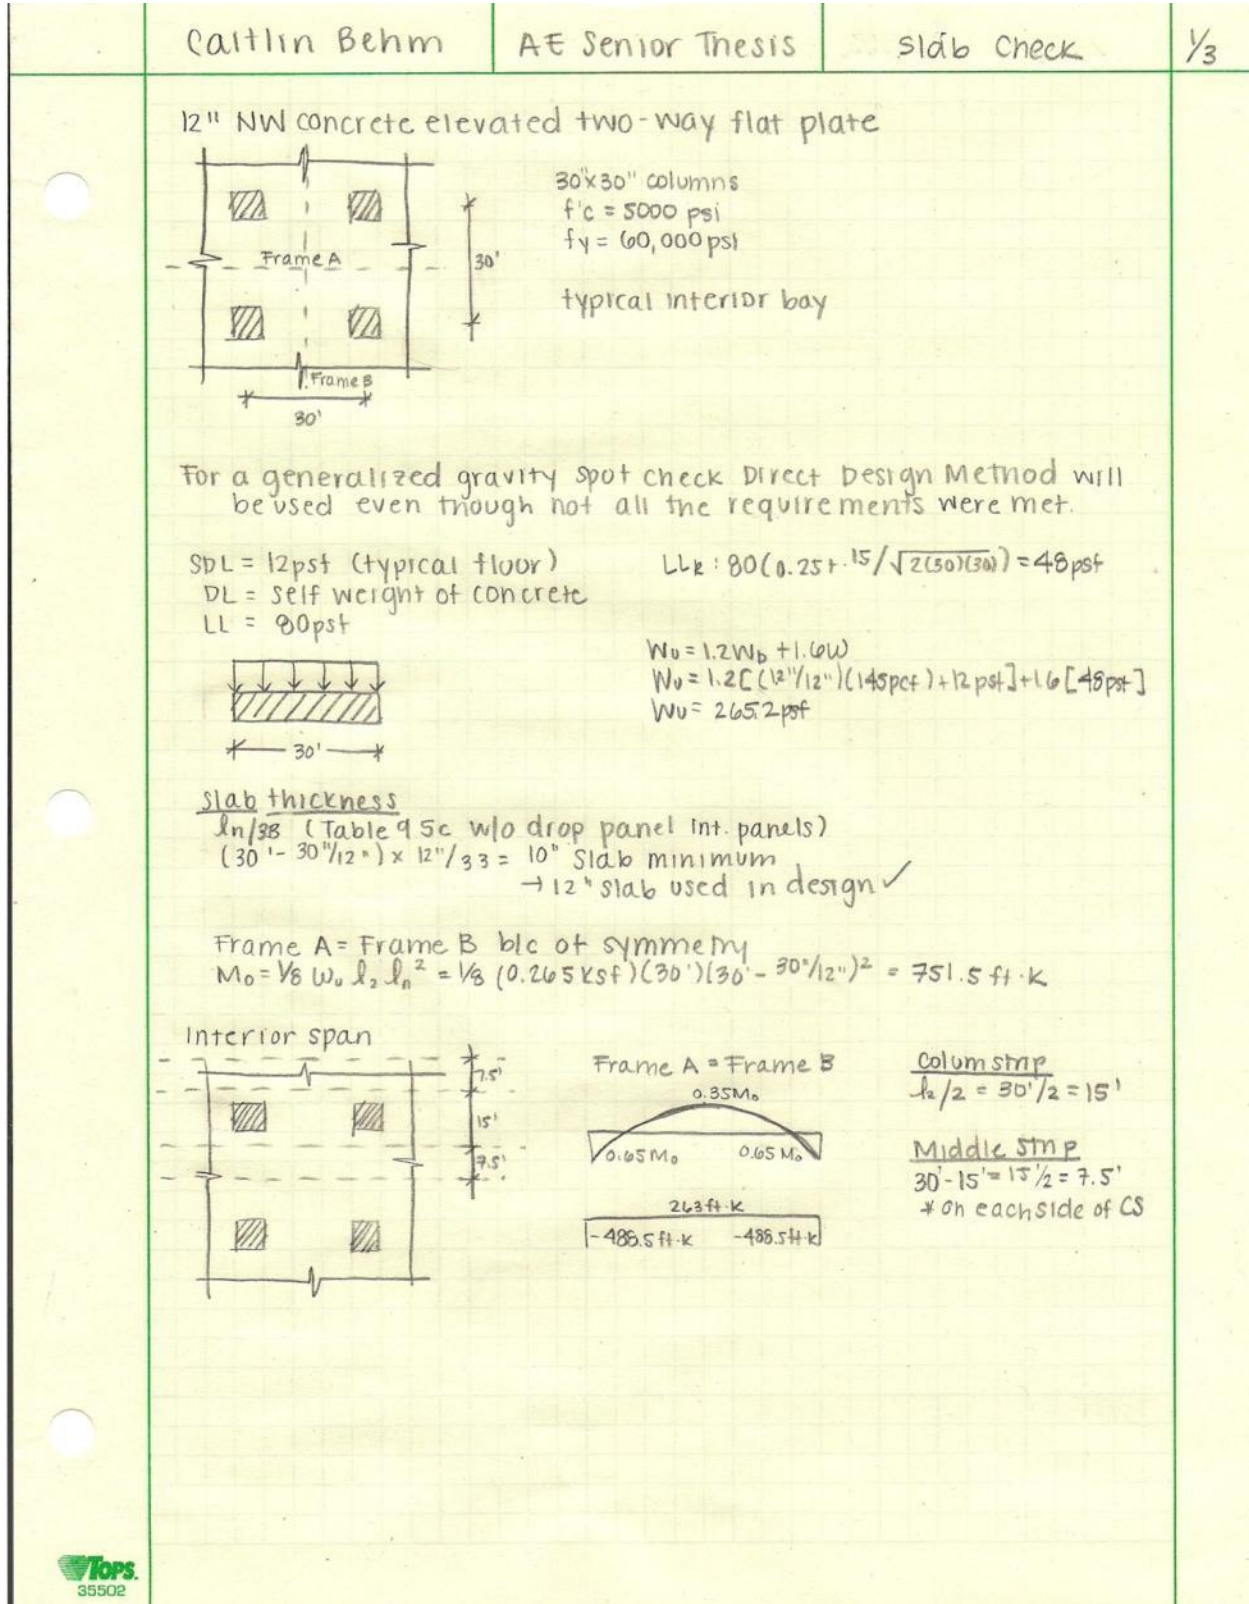 Caitlin Behm
AE Senior Thesis
Slab Check
1/3
12" NW concrete elevated two-way flat plate
30"x30" columns
f'c = 5000 psi
fy = 60,000 psi
typical interior bay
Frame A
30'
Frame B
30'
For a generalized gravity spot check Direct Design Method will
be used even though not all the requirements were met.
SDL = 12psf (typical floor)
DL = self weight of concrete
LL = 80psf
LLR : 80(0.25 + 15/√2(30)(30)) = 48psf
Wu = 1.2WD + 1.6W
Wu = 1.2[(12"/12")(145pcf) + 12psf] + 1.6[48psf]
Wu = 265.2psf
30'
slab thickness
ln/38 (Table 9.5c w/o drop panel int. panels)
(30' - 30"/12") x 12"/33 = 10" slab minimum
→ 12" slab used in design ✓
Frame A = Frame B b/c of symmetry
Mo = 1/8 ωu l2 ln² = 1/8 (0.265ksf)(30')(30' - 30"/12")² = 751.5 ft·k
Interior span
7.5'
15'
7.5'
Frame A = Frame B
0.35Mo
0.65Mo 0.65Mo
263ft·k
-488.5ft·k -488.5ft·k
Colum strip
l2/2 = 30'/2 = 15'
Middle strip
30'-15' = 15'/2 = 7.5'
* on each side of CS
TOPS.
35502